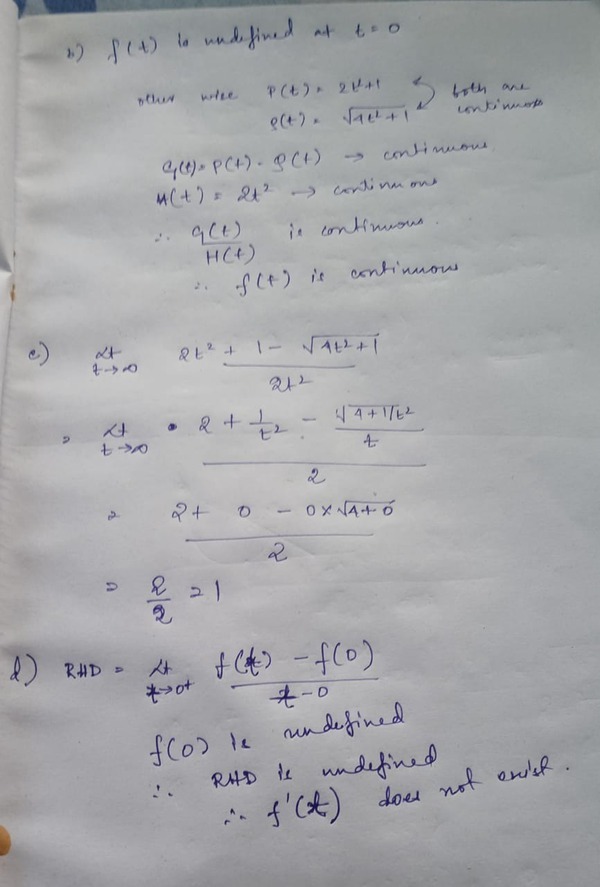 b) f(t) is undefined at t = 0
other wise P(t) = 2t²+1
Q(t) = √4t²+1
both are continuous
G(t) = P(t) - Q(t) → continuous.
H(t) = 2t² → continuous
∴ G(t)/H(t) is continuous.
∴ f(t) is continuous
c) Lt t→∞ (2t² + 1 - √4t²+1)/2t²
= Lt t→∞ (2 + 1/t² - √4+1/t²/t)/2
= (2 + 0 - 0×√4+0)/2
= 2/2 = 1
d) RHD = Lt t→0+ (f(t) - f(0))/(t-0)
f(0) is undefined
∴ RHD is undefined
∴ f'(t) does not exist.